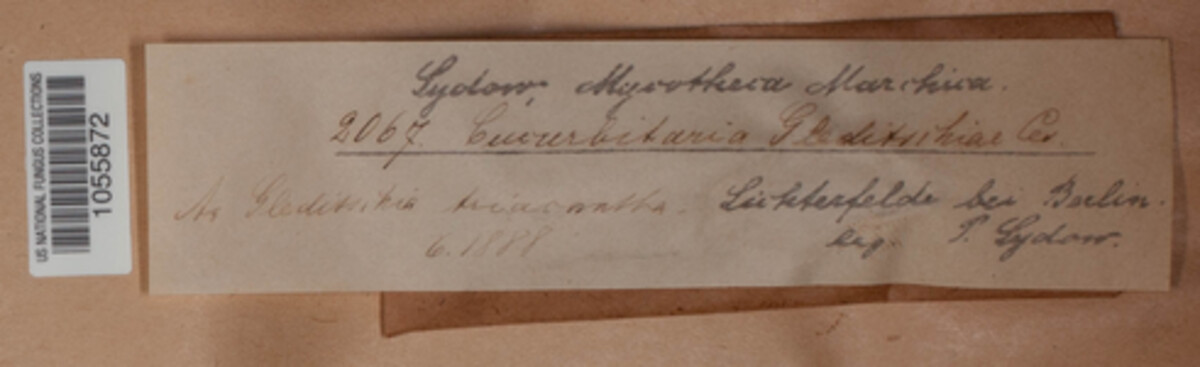 US NATIONAL FUNGUS COLLECTIONS
1055872
Sydow, Mycotheca Marchica.
2067. Cucurbitaria Gleditschiae Ces.
An Gleditschia triacantha. Lichterfelde bei Berlin.
6.1888 leg. P. Sydow.